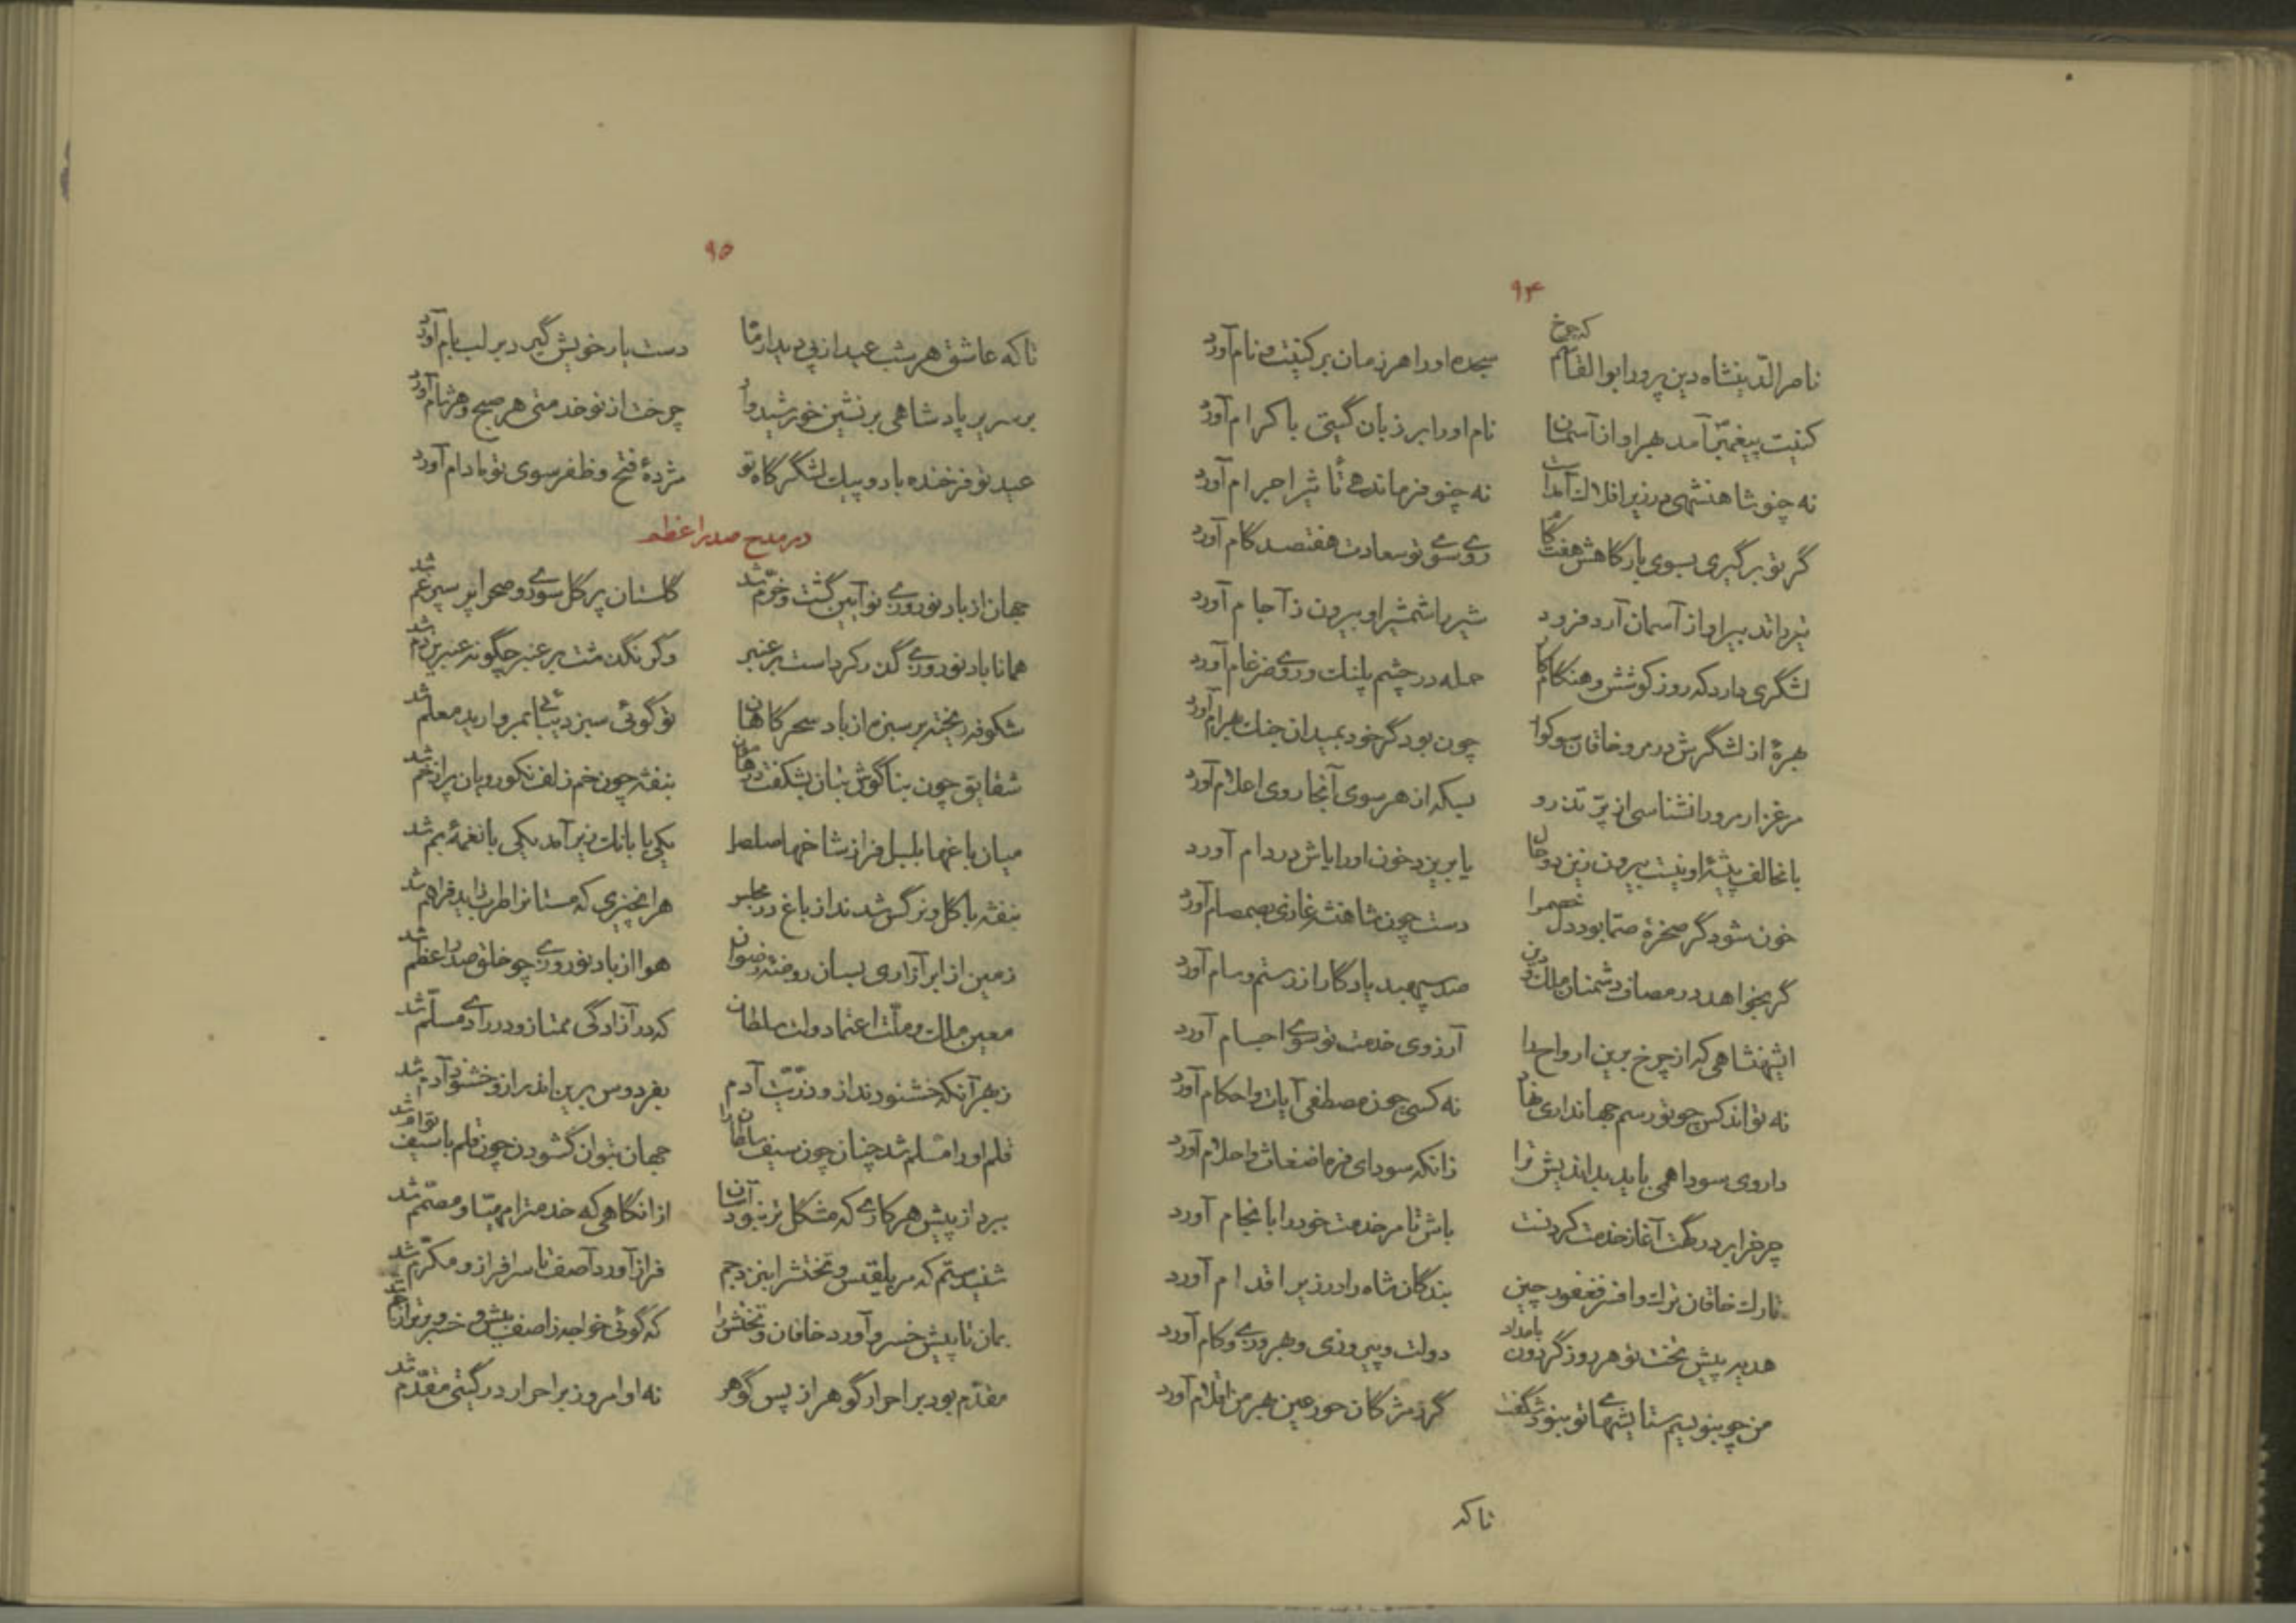 ۹۴
ناصر الدینشاه دین پرور ابوالقاسم که چرخ سجده او را هر زمان بر کنیت و نام آورد
کنیت پیغمبر آمد بهر او از آسمان نام او را بر زبان گیتی باکرام آورد
نه چنو شاهنشهی در زیر افلاک آمدست نه چنو فرماندهی تأثیر اجرام آورد
گر تو برگیری بسوی بارگاهش هفت گام روی سوی تو سعادت هفتصد گام آورد
تیر داند بیر او از آسمان آرد فرود شیر با شمشیر او بیرون ز آجام آورد
لشگری دارد که روز کوشش و هنگام کار حمله در چشم پلنگ و روی ضرغام آورد
بهرهٔ از لشگرش در مرو خاقان سوکوار چون بود گر خود بمیدان جنگ بهرام آورد
مرغزار مرو را نشناسی از پرّ تذرو بسکه از هر سوی آنجا روی اعلام آورد
با مخالف پیشهٔ او نیست بیرون زین دو حال یا بریزد خون او را یاش در دام آورد
خون شود گر صخرهٔ صمّا بود دل خصمرا دست چون شاهنشه غازی بصمصام آورد
گر بخواهد در مصاف دشمنان ملک و دین صد سپهبد یادگار از رستم و سام آورد
ایشهنشاهی که از چرخ برین ارواح را آرزوی خدمت تو سوی اجسام آورد
نه تواند کس چو تو رسم جهانداری نهاد نه کسی چون مصطفی آیات و احکام آورد
داروی سودا همی باید بداندیش ترا زانکه سودای فره اضغاث و احلام آورد
چرخ را بر درگهت آغاز خدمت کردنست باش تا مر خدمت خود را بانجام آورد
تارک خاقان ترک و افسر فغفور چین بندگان شاه را در زیر اقدام آورد
هدیه پیش تخت تو هر روز گردون بامداد دولت و پیروزی و بهروزی و کام آورد
من چو بنویسم ستایشهای تو نبود شگفت گر ز مژگان حور عین بهر من اقلام آورد
تا که
۹۵
تا که عاشق هر شب عید از پی دیدار ماه دست یار خویش گیرد بر لب بام آورد
بر سریر پادشاهی بر نشین خورشید وار چرخت از نو خدمتی هر صبح و هر شام آورد
عید تو فرخنده باد و پیک لشگرگاه تو مژدهٔ فتح و ظفر سوی تو مادام آورد
در مدح صدر اعظم
جهان از باد نوروزی نوآیین گشت و خرّم شد گلستان پر گل سوری و صحرا پر سپرغم شد
همانا باد نوروزی گذر کرداست بر عنبر وگر نگذشت بر عنبر چگونه عنبرین دم شد
شکوفه ریخته بر سبزه از باد سحرگاهان تو گوئی سبز دیبائی بمروارید معلم شد
شقایق چون بناگوش بتان بشکفت در بنفشه چون خم زلف نکورویان پر از خم شد
میان باغها بلبل فراز شاخها صلصل یکی با بانگ زیر آمد یکی با نغمهٔ بم شد
بنفشه با گل و نرگس شدند از باغ در مجلس هر انچیزی که مستانرا طرب زاید فراهم شد
زمین از ابر آزاری بسان روضهٔ رضوان هوا از باد نوروزی چو خلق صدر اعظم شد
معین ملک و ملّت اعتماد دولت سلطان که در آزادگی ممتاز و در رادی مسلّم شد
ز بهر آنکه خشنودند ازو ذرّیت آدم بفردوس برین اندر ازو خشنود آدم شد
قلم او را مسلم شد چنان چون سیف سلطان را جهان بتوان گشودن چون قلم با سیف توام شد
ببرد از پیش هر کاری که مشکل تر نبود آسان از انگاهی که خدمترا مهیّا و مصمّم شد
شنیدستم که مر بلقیس و تختش را بنزد جم فراز آورد آصف تا سرافراز و مکرّم شد
بمان تا پیش خسرو آورد خاقان و تختش را که گوئی خواجه ز آصف بیش و خسرو برتر از جم شد
مقدّم بود بر احرار گوهر از پس گوهر نه او امروز بر احرار در گیتی مقدّم شد